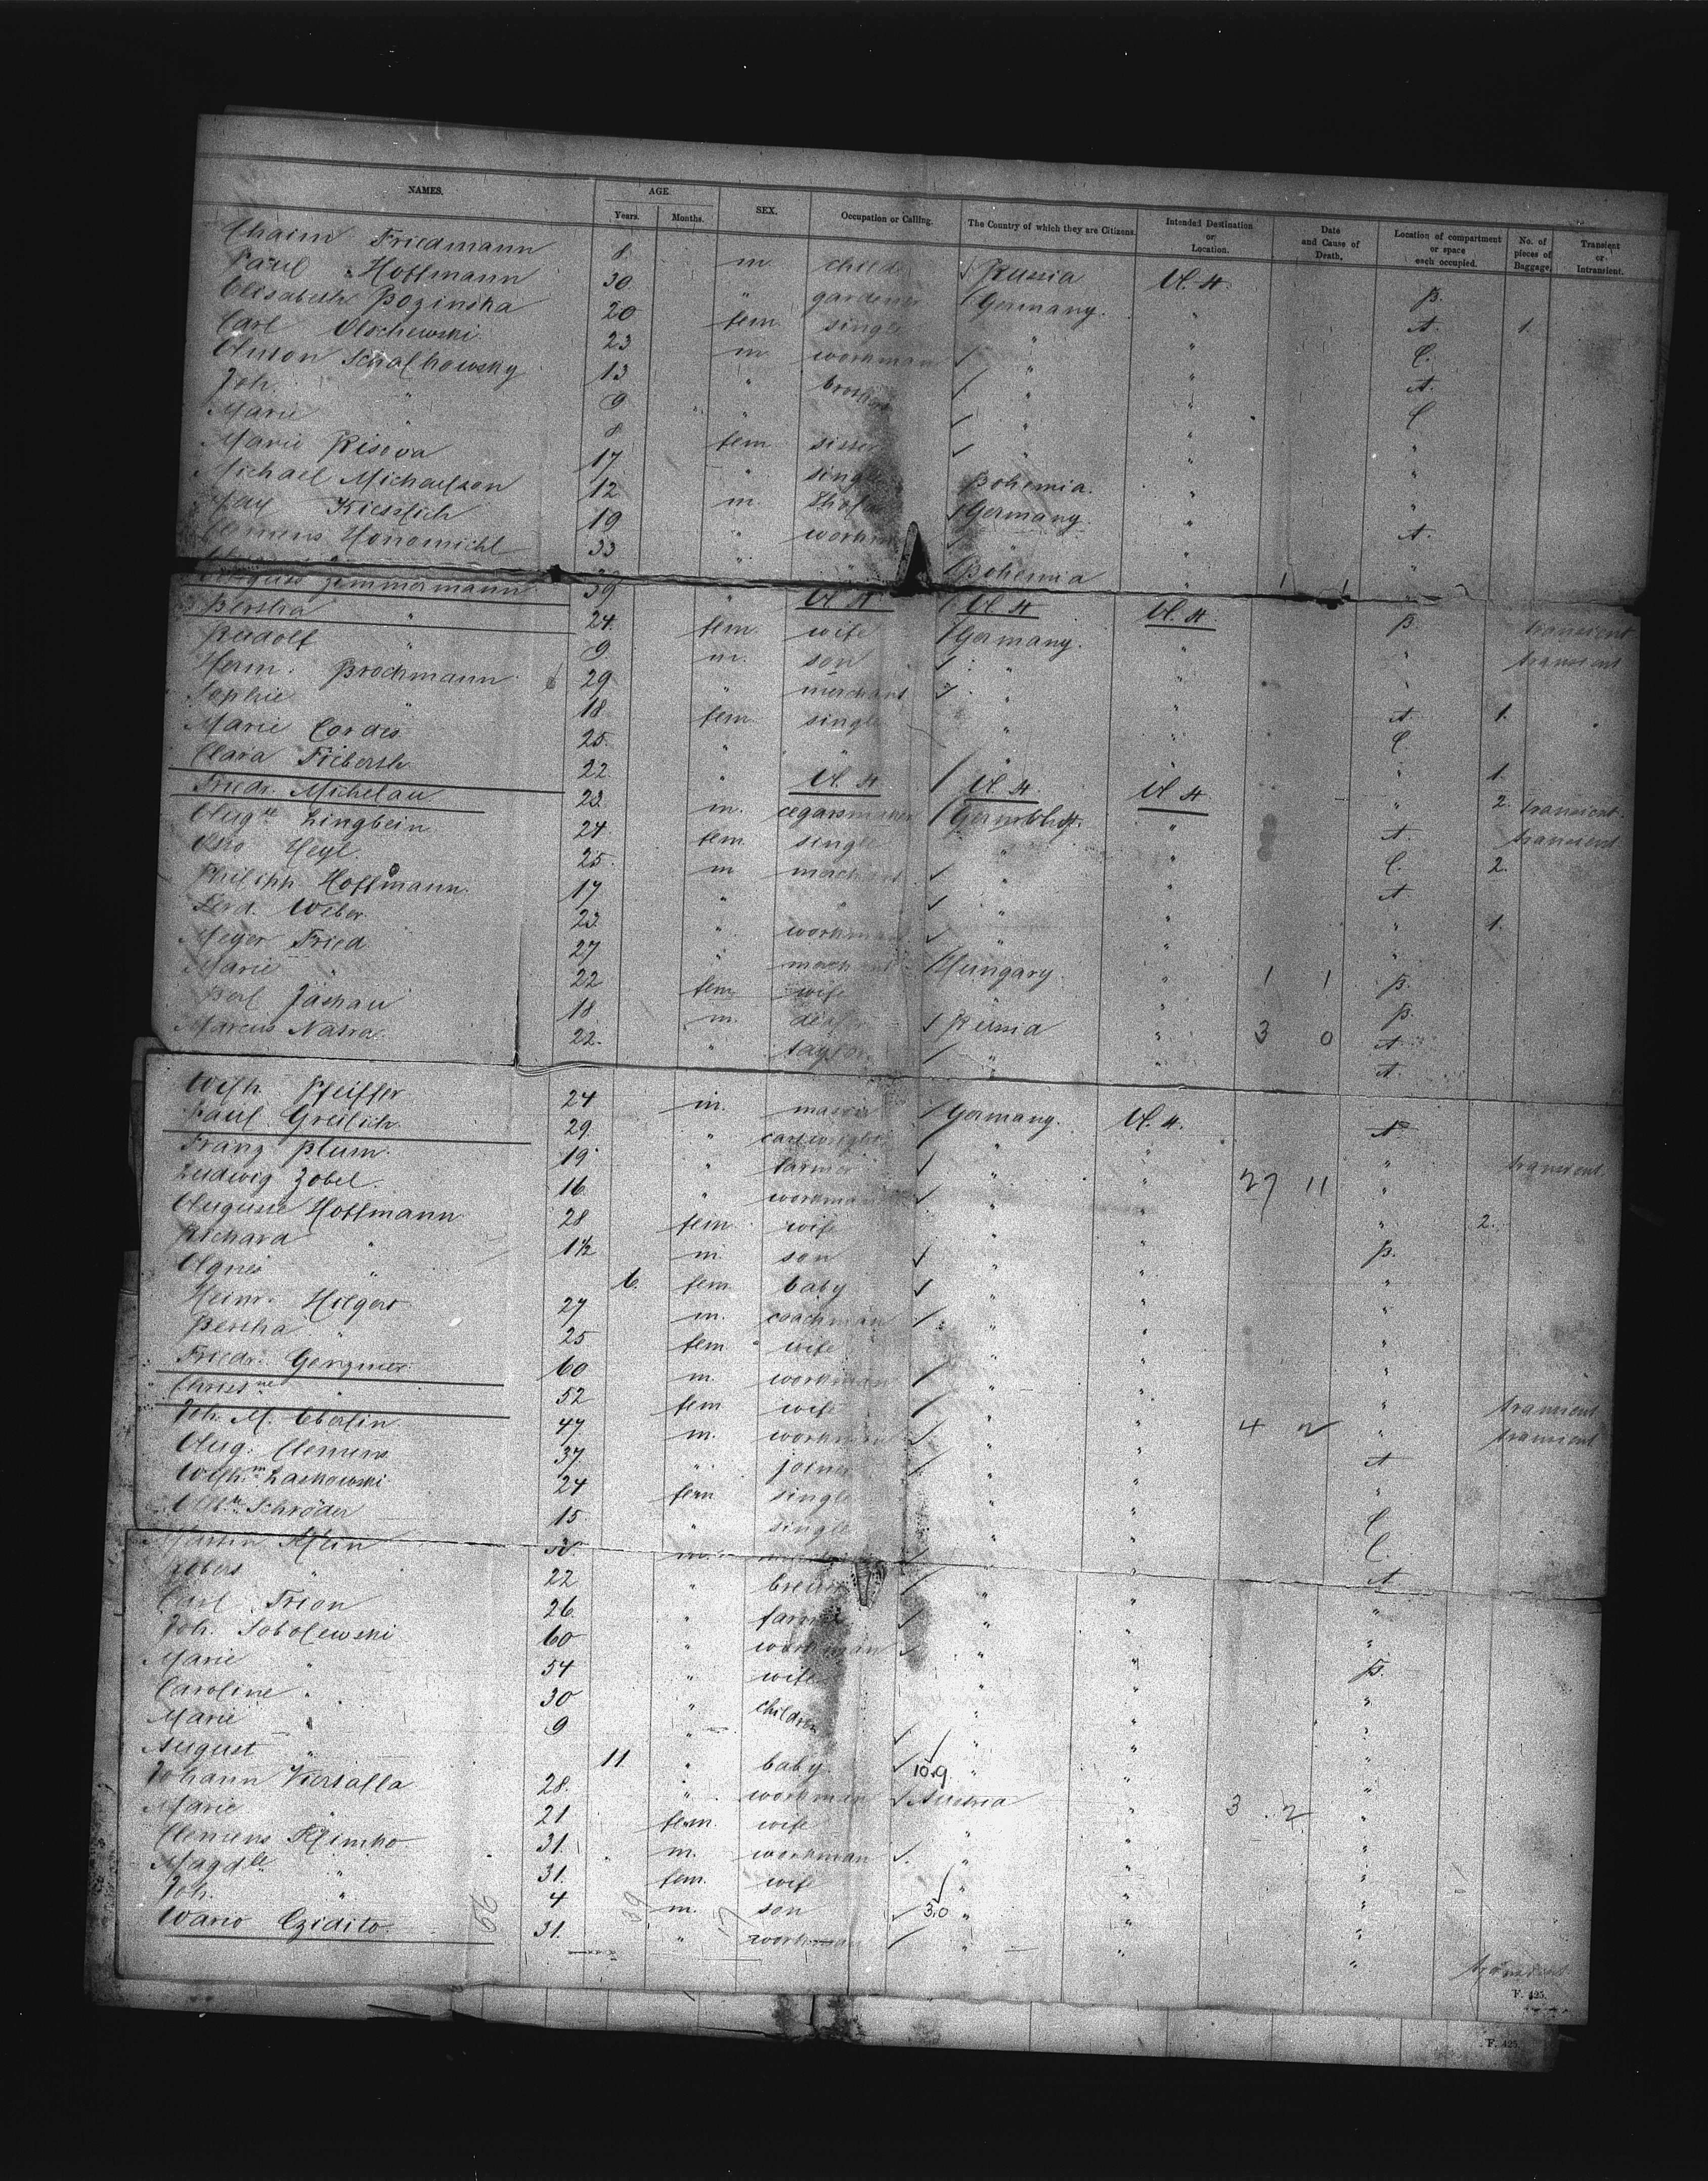 NAMES. AGE. SEX. Occupation or Calling. The Country of which they are Citizens. Intended Destination or Location. Date and Cause of Death. Location of compartment or space each occupied. No. of pieces of Baggage. Transient or Intransient.
Years. Months.
Chaim Friedmann 8 m child Russia U. St. B.
Paul Hoffmann 30 " gardener Germany. " A. 1.
Elisabeth Bozinska 20 fem single " " C.
Carl Olschewski 23 m workman " " A.
Anton Schalkowsky 13 " brother " " C
Joh. " 9 " " " "
Marie " 8 fem sister " " "
Marie Risova 17 " single Bohemia. " "
Michael Michaelson 12 m. Germany. " A.
Max Kiesslich 19 " workman " " "
Clemens Honomichl 33 " " Bohemia "
August Zimmermann 39 " U. St U. St U. St B. transient
Bertha " 24. fem. wife Germany. " " transient
Rudolf " 9 m. son " " "
Herm. Brockmann 29 " merchant " " A. 1.
Sophie " 18 fem. single " " C.
Marie Cordes 25. " " " " " 1.
Clara Fiebersh 22 " U. St U. St. U St. " 2. transient.
Friedr. Michelau 23. m. cegarsmaker " A. transient
Aug.te Lingbein 24 fem. single " " C. 2.
Otto Heyl. 25. m merchant " " A.
Philipp Hoffmann. 17 " " " " " 1.
Ferd. Weber 23. " workman " " "
Meyer Fried 27 " merchant Hungary. " 1 1 B.
Marie " 22 fem. wife " B.
Berl Jasnau 18 m. Russia " 3 0 A.
Marcus Nasra. 22. " taylor " " A.
Wilh. Pfeiffer 24 m. Germany. U. St. A
Paul Greilich. 29. " cartwright " " " transient
Franz Blum. 19. " farmer " " 27 11 "
Ludwig Zobel. 16. " workman " " " 2.
Auguste Hoffmann 28 fem. wife " " B.
Richard " 1½ m. son " " "
Agnes " 6. fem. baby " " "
Heinr. Hilgert 27 m. coachman " " "
Bertha " 25 fem. wife " " "
Friedr. Genzmer 60 m. workman " " " transient
" 52 fem. wife " " 4 2 " transient
Joh. M. Eberlin 47 m. workman " " A
Aug. Clemens 37. " joiner " " "
Wilh.m Laskowski 24 fem. single " " C
Schröder 15 " single " " C.
Martin Klin m. " A
Robert " 22 " brewer " " "
Carl Frion 26. " farmer " " "
Joh. Sobolewski 60 " workman " " B.
Marie " 54 " wife " " "
Caroline " 30 " children " " "
Marie " 9 " " " "
August " 11. " baby 10.9 " " "
Johann Kersalla 28. " workman Austria " 3. 2 "
Marie " 21 fem. wife " " "
Clemens Klimko 31. m. workman " " "
Magd.le " 31. fem. wife " " "
Joh. " 4 m. son 3.0 " " "
Wario Czidito. 66 31. 39 " 17 workman " " " transient
F. 425.
F. 425.